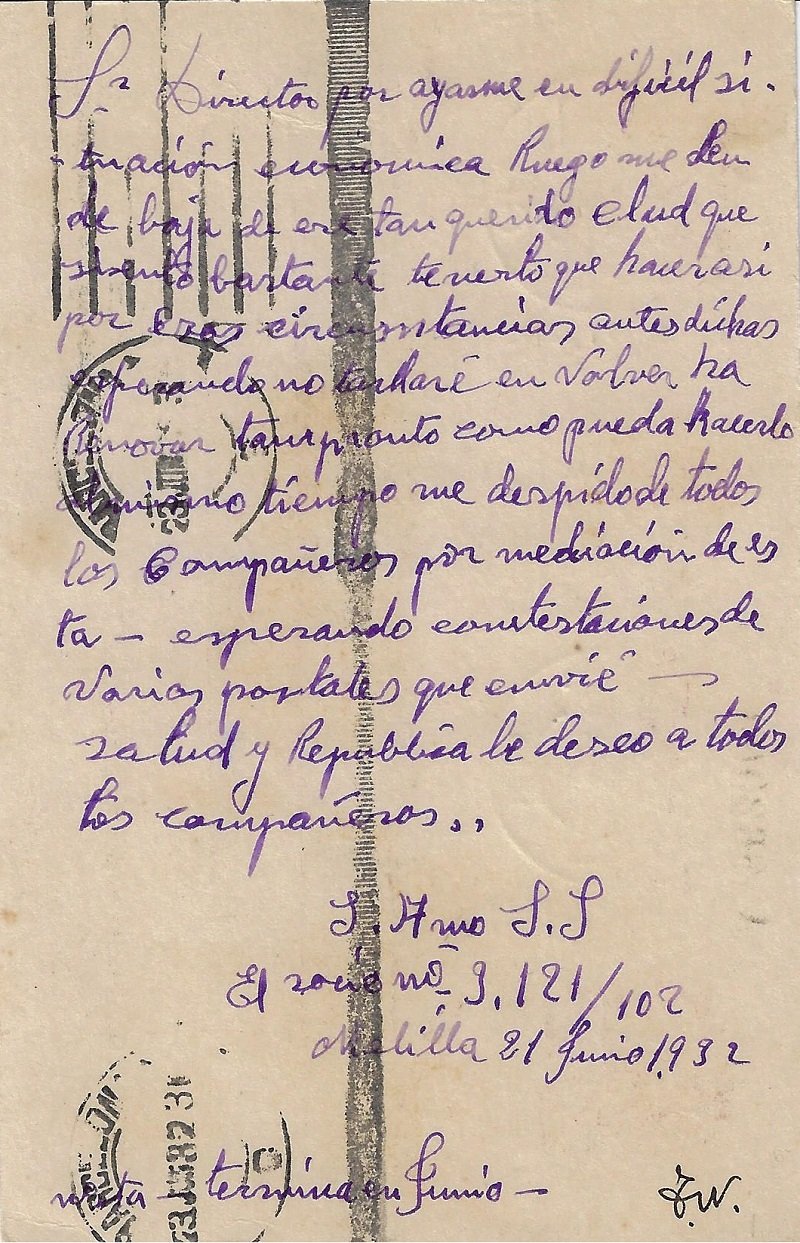 Sr Director por ayarme en dificil si-
-tuación económica Ruego me den
de baja de ese tan querido Clud que
siento bastante tenerlo que hacer asi
por esas circunstancias antes dichas
esperando no tardaré en Volver ha
Renovar tan pronto como pueda hacerlo
al mismo tiempo me despido de todos
los Compañeros por mediación de es
ta - esperando contestaciones de
Varias postales que envié -
salud y Republica le deseo a todos
los compañeros..
S. Afmo S.S
El socio nº 3.121/102
Melilla 21 Junio 1.932
nota - termina en Junio -
BARCELONA
23 JUN 32
BARCELONA
23 JUN 32